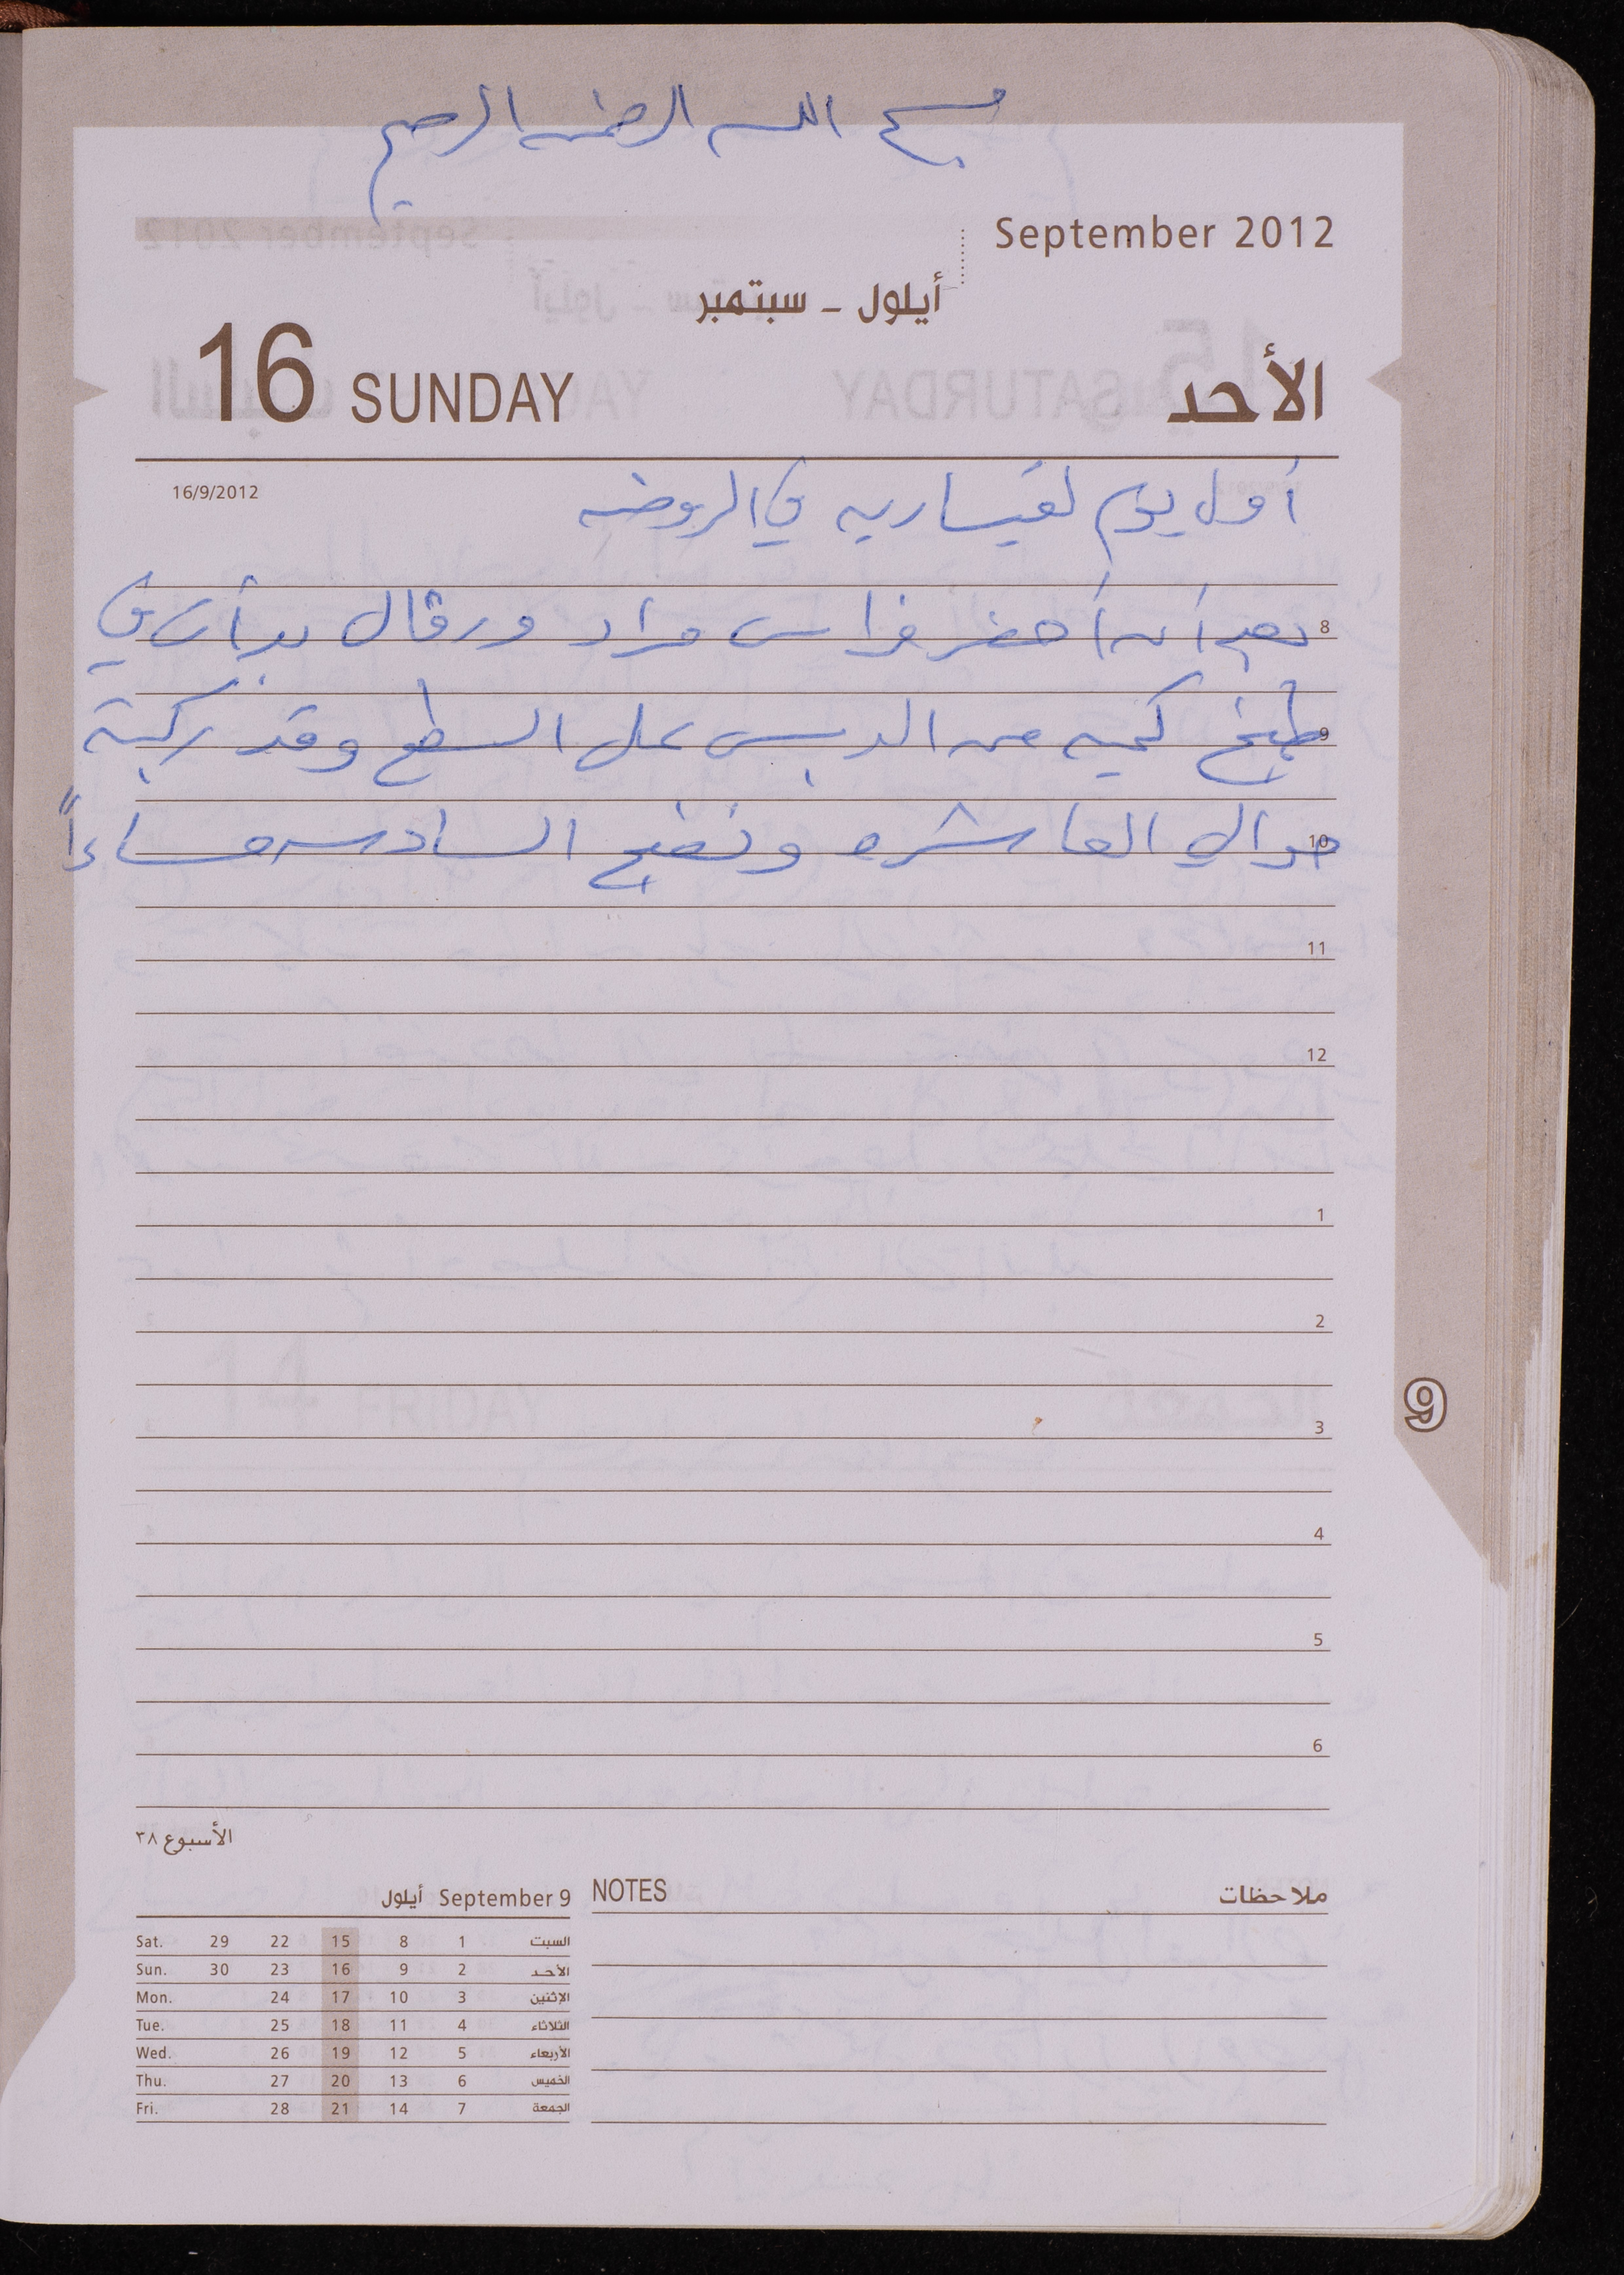 بسم الله الرحمن الرحيم
September 2012
أيلول - سبتمبر
16 SUNDAY الأحد
16/9/2012
أول يوم لقيساريه في الروضه
8 بعد أن أحضر فراس مراد ورقال بدأت في
9 طبخ كميه من الدبس على السطح وقد ركبته
10 حوالي العاشره ونضج السادسه مساءاً
11
12
1
2
3
4
5
6
الأسبوع ٣٨
September 9 أيلول
NOTES ملاحظات
Sat. 29 22 15 8 1 السبت
Sun. 30 23 16 9 2 الأحد
Mon. 24 17 10 3 الإثنين
Tue. 25 18 11 4 الثلاثاء
Wed. 26 19 12 5 الأربعاء
Thu. 27 20 13 6 الخميس
Fri. 28 21 14 7 الجمعة
9